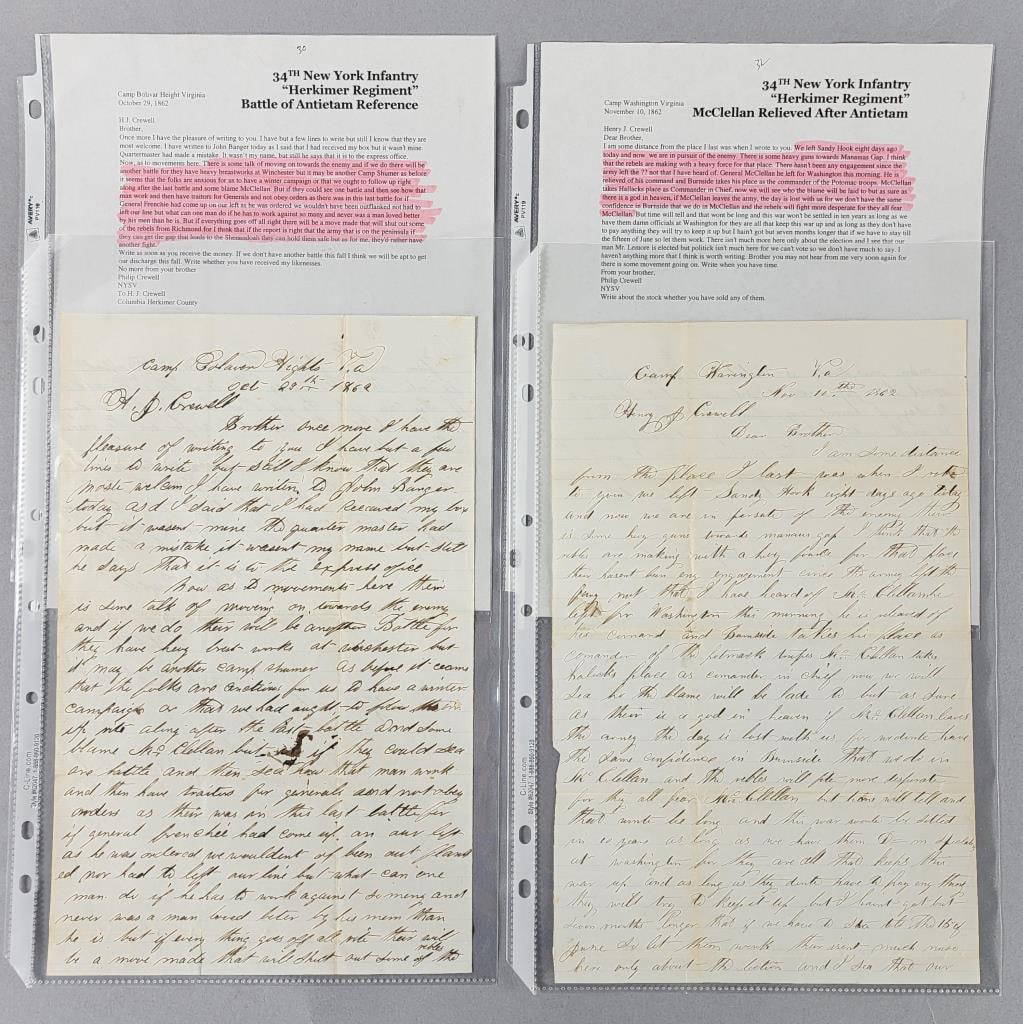 30
34TH New York Infantry
“Herkimer Regiment”
Battle of Antietam Reference
Camp Bolivar Height Virginia
October 29, 1862
H.J. Crewell
Brother,
Once more I have the pleasure of writing to you. I have but a few lines to write but still I know that they are
most welcome. I have written to John Banger today as I said that I had received my box but it wasn't mine.
Quartermaster had made a mistake. It wasn't my name, but still he says that it is to the express office.
Now, as to movements here. There is some talk of moving on towards the enemy and if we do there will be
another battle for they have heavy breastworks at Winchester but it may be another Camp Shumer as before
it seems that the folks are anxious for us to have a winter campaign or that we ought to follow up right
along after the last battle and some blame McClellan. But if they could see one battle and then see how that
man work and then have traitors for Generals and not obey orders as there was in this last battle for if
General Frenchie had come up on our left as he was ordered we wouldn't have been outflanked not had to
left our line but what can one man do if he has to work against so many and never was a man loved better
by his men than he is. But if everything goes off all right there will be a move made that will shut out some
of the rebels from Richmond for I think that if the report is right that the army that is on the peninsula if
they can get the gap that leads to the Shenandoah they can hold them safe but as for me, they'd rather have
another fight.
Write as soon as you receive the money. If we don't have another battle this fall I think we will be apt to get
our discharge this fall. Write whether you have received my likenesses.
No more from your brother
Philip Crewell
NYSV
To H. J. Crewell
Columbia Herkimer County
AVERY®
PV119
C-Line.com
Camp Bolavar Hights Va
Oct 29th 1862
H. J. Crewell
Brother once more I have the
pleasure of writing to you I have but a few
lines to write but still I know that they are
moste welcom I have writen to John Banger
today as I said that I had receaved my box
but it wasent mine the quarter master had
made a mistake it wasent my name but still
he says that it is to the express office
Now as to movements here their
is some talk of moving on towards the enemy
and if we do their will be another Battle for
they have hevy brest works at winchester but
it may be another camp shumer as before it seams
that the folks are anctious for us to have a winter
campaign or that we had ought to follow them
up rite along after the last battle and some
blame Mc Clellan but if they could sea
one battle and then sea how that man work
and then have traitors for generals and not obey
orders as their was in this last battle for
if general frenchee had come up on our left
as he was ordered we wouldent of been out flank
ed nor had to left our line but what can one
man do if he has to work against so meny and
never was a man loved beter by his mem than
he is but if every thing goes off all rite their will
be a move made that will shut out some of the
rebles
32
34TH New York Infantry
“Herkimer Regiment”
McClellan Relieved After Antietam
Camp Washington Virginia
November 10, 1862
Henry J. Crewell
Dear Brother,
I am some distance from the place I last was when I wrote to you. We left Sandy Hook eight days ago
today and now we are in pursuit of the enemy. There is some heavy guns towards Manassas Gap. I think
that the rebels are making with a heavy force for that place. There hasn't been any engagement since the
army left the ?? not that I have heard of. General McClellan he left for Washington this morning. He is
relieved of his command and Burnside takes his place as the commander of the Potomac troops. McClellan
takes Hallacks place as Commander in Chief, now we will see who the blame will be laid to but as sure as
there is a god in heaven, if McClellan leaves the army, the day is lost with us for we don't have the same
confidence in Burnside that we do in McClellan and the rebels will fight more desperate for they all fear
McClellan. But time will tell and that wont be long and this war won't be settled in ten years as long as we
have them damn officials at Washington for they are all that keep this war up and as long as they don't have
to pay anything they will try to keep it up but I hain't got but seven months longer that if we have to stay till
the fifteen of June so let them work. There isn't much more here only about the election and I see that our
man Mr. Lenore is elected but politics isn't much here for we can't vote so we don't have much to say. I
haven't anything more that I think is worth writing. Brother you may not hear from me very soon again for
there is some movement going on. Write when you have time.
From your brother,
Philip Crewell
NYSV
Write about the stock whether you have sold any of them.
AVERY®
PV119
C-Line.com
Camp Va
Nov 10th 1862
Henry J Crewell
Dear Brother
I am some distance
from the place I last was when I rote
to you we left Sandy Hook eight days ago today
and now we are in persute of the enemy their
is some hevy guns towards manasus gap I think that the
rebles are making with a hevy force for that place
their hasent ben eny engagement cince the army left the
not that I have heard of Mc Clellan he
left for Washington this morning he is releaved of
his comand and Burnside takes his place as
comander of the Mc Clellan takes
place as comander in chief now we will
sea ho the blame will be lade to but as sure
as their is a god in heaven if Mc Clellan leaves
the army the day is lost with us for we dont have
the same confidence in Burnside that we do in
Mc Clellan and the rebles will fite more desperate
for they all fear Mc Clellan but time will tell and
that wont be long and this war wont be setled
in 10 years as long as we have them D—m
at washington for they are all that keeps this
war up and as long as they dont have to pay eny thing
they will try to keep it up but I haint got but
seven months longer that if we have to till the 15 of
june so let them work their isent much more
here only about the election and I sea that our